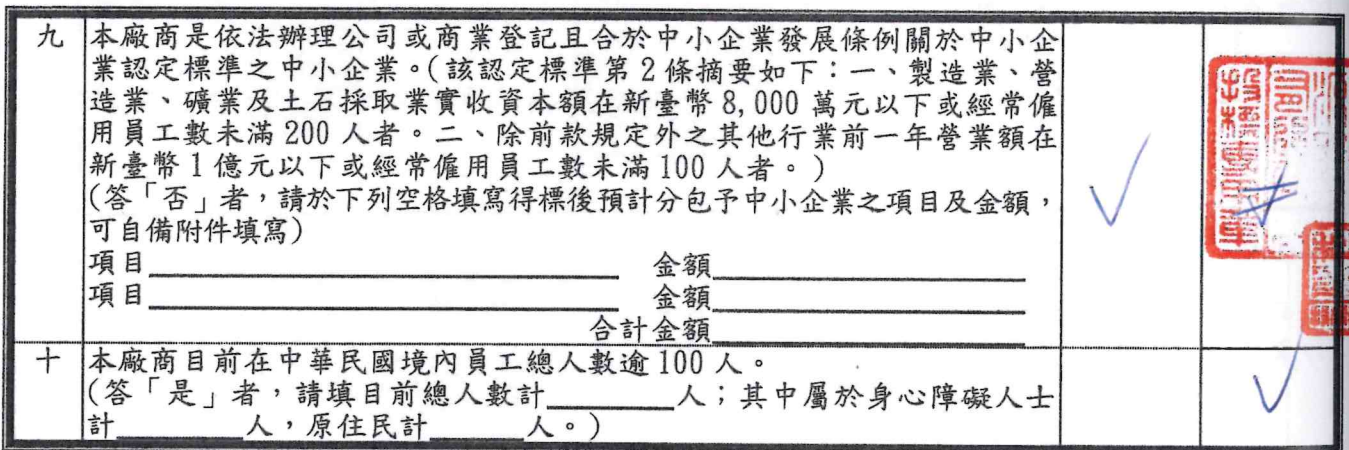 九
本廠商是依法辦理公司或商業登記且合於中小企業發展條例關於中小企
業認定標準之中小企業。(該認定標準第2條摘要如下：一、製造業、營
造業、礦業及土石採取業實收資本額在新臺幣8,000萬元以下或經常僱
用員工數未滿200人者。二、除前款規定外之其他行業前一年營業額在
新臺幣1億元以下或經常僱用員工數未滿100人者。)
(答「否」者，請於下列空格填寫得標後預計分包予中小企業之項目及金額，
可自備附件填寫)
項目 金額
項目 金額
合計金額
十
本廠商目前在中華民國境內員工總人數逾100人。
(答「是」者，請填目前總人數計 人；其中屬於身心障礙人士
計 人，原住民計 人。)